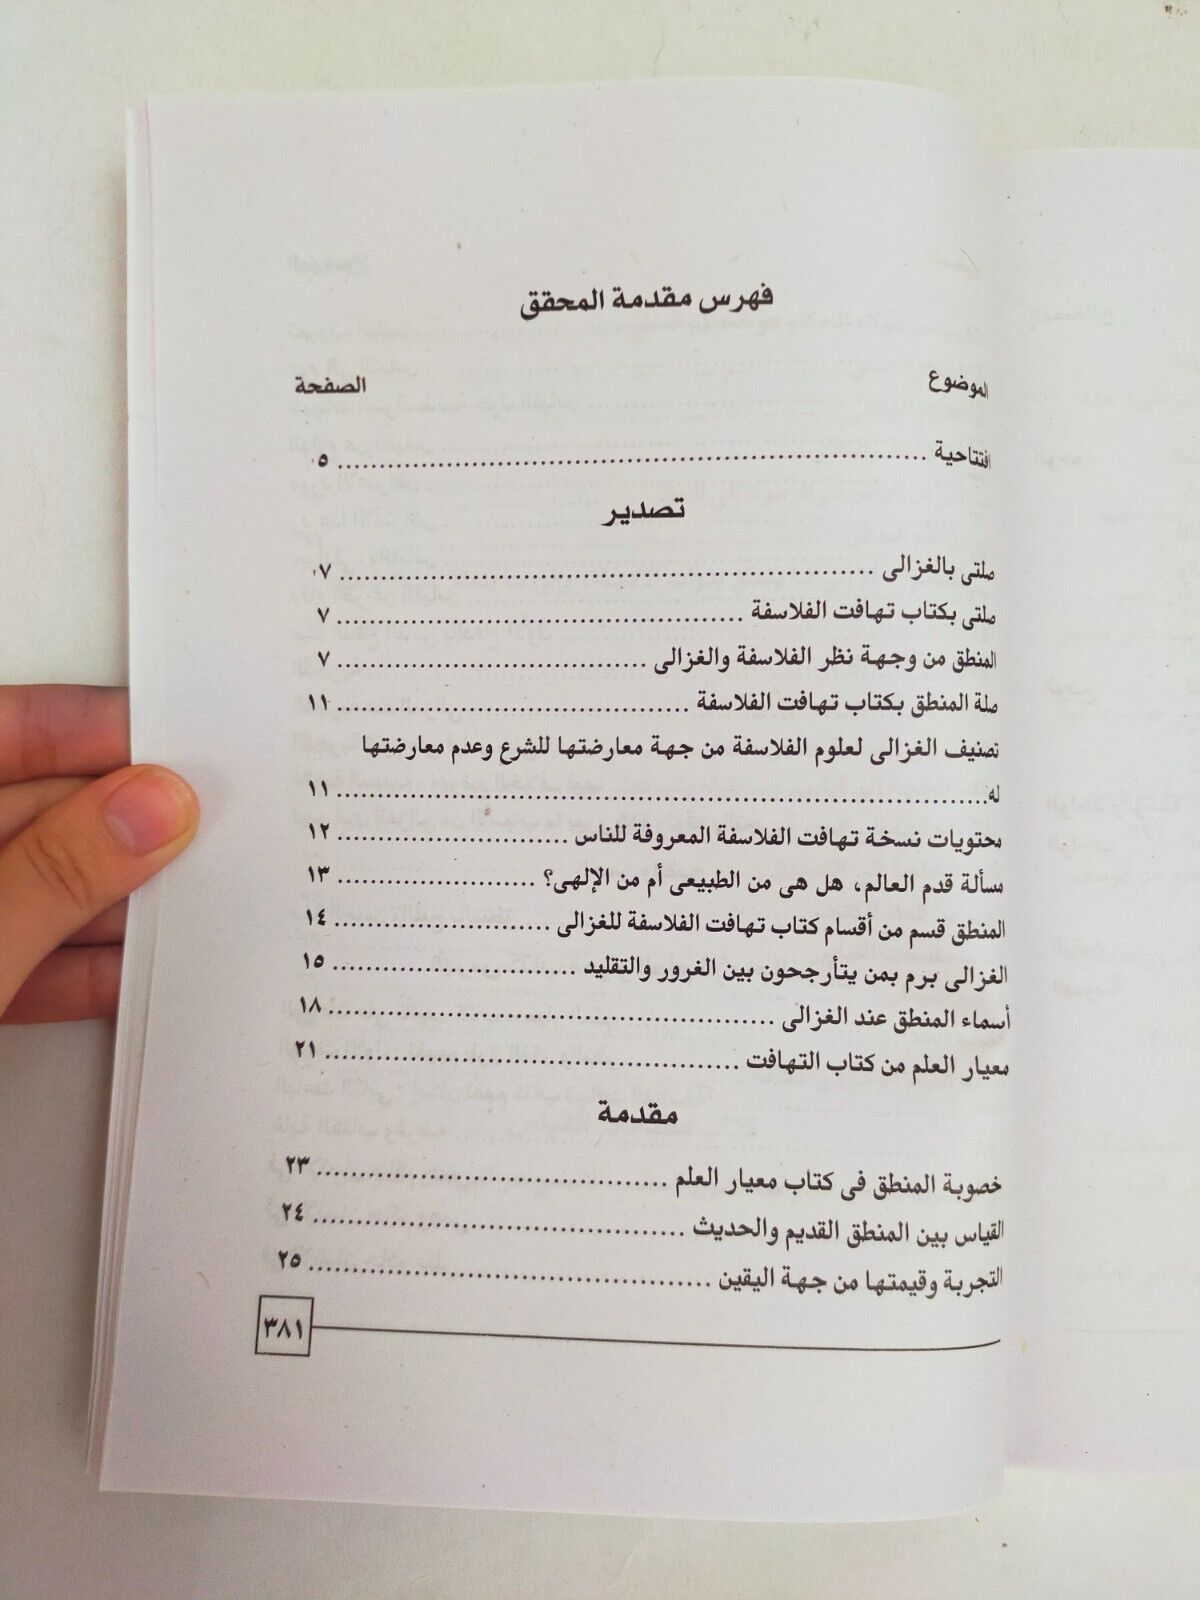 فهرس مقدمة المحقق
الموضوع الصفحة
افتتاحية ........................................................ ٥
تصدير
صلتى بالغزالى ........................................................ ٧
صلتى بكتاب تهافت الفلاسفة ........................................... ٧
المنطق من وجهة نظر الفلاسفة والغزالى ............................... ٧
صلة المنطق بكتاب تهافت الفلاسفة ..................................... ١١
تصنيف الغزالى لعلوم الفلاسفة من جهة معارضتها للشرع وعدم معارضتها
له ................................................................ ١١
محتويات نسخة تهافت الفلاسفة المعروفة للناس ......................... ١٢
مسألة قدم العالم، هل هى من الطبيعى أم من الإلهى؟ .................... ١٣
المنطق قسم من أقسام كتاب تهافت الفلاسفة للغزالى ..................... ١٤
الغزالى برم بمن يتأرجحون بين الغرور والتقليد ........................ ١٥
أسماء المنطق عند الغزالى ........................................... ١٨
معيار العلم من كتاب التهافت ........................................ ٢١
مقدمة
خصوبة المنطق فى كتاب معيار العلم ................................... ٢٣
القياس بين المنطق القديم والحديث ................................... ٢٤
التجربة وقيمتها من جهة اليقين ...................................... ٢٥
٣٨١